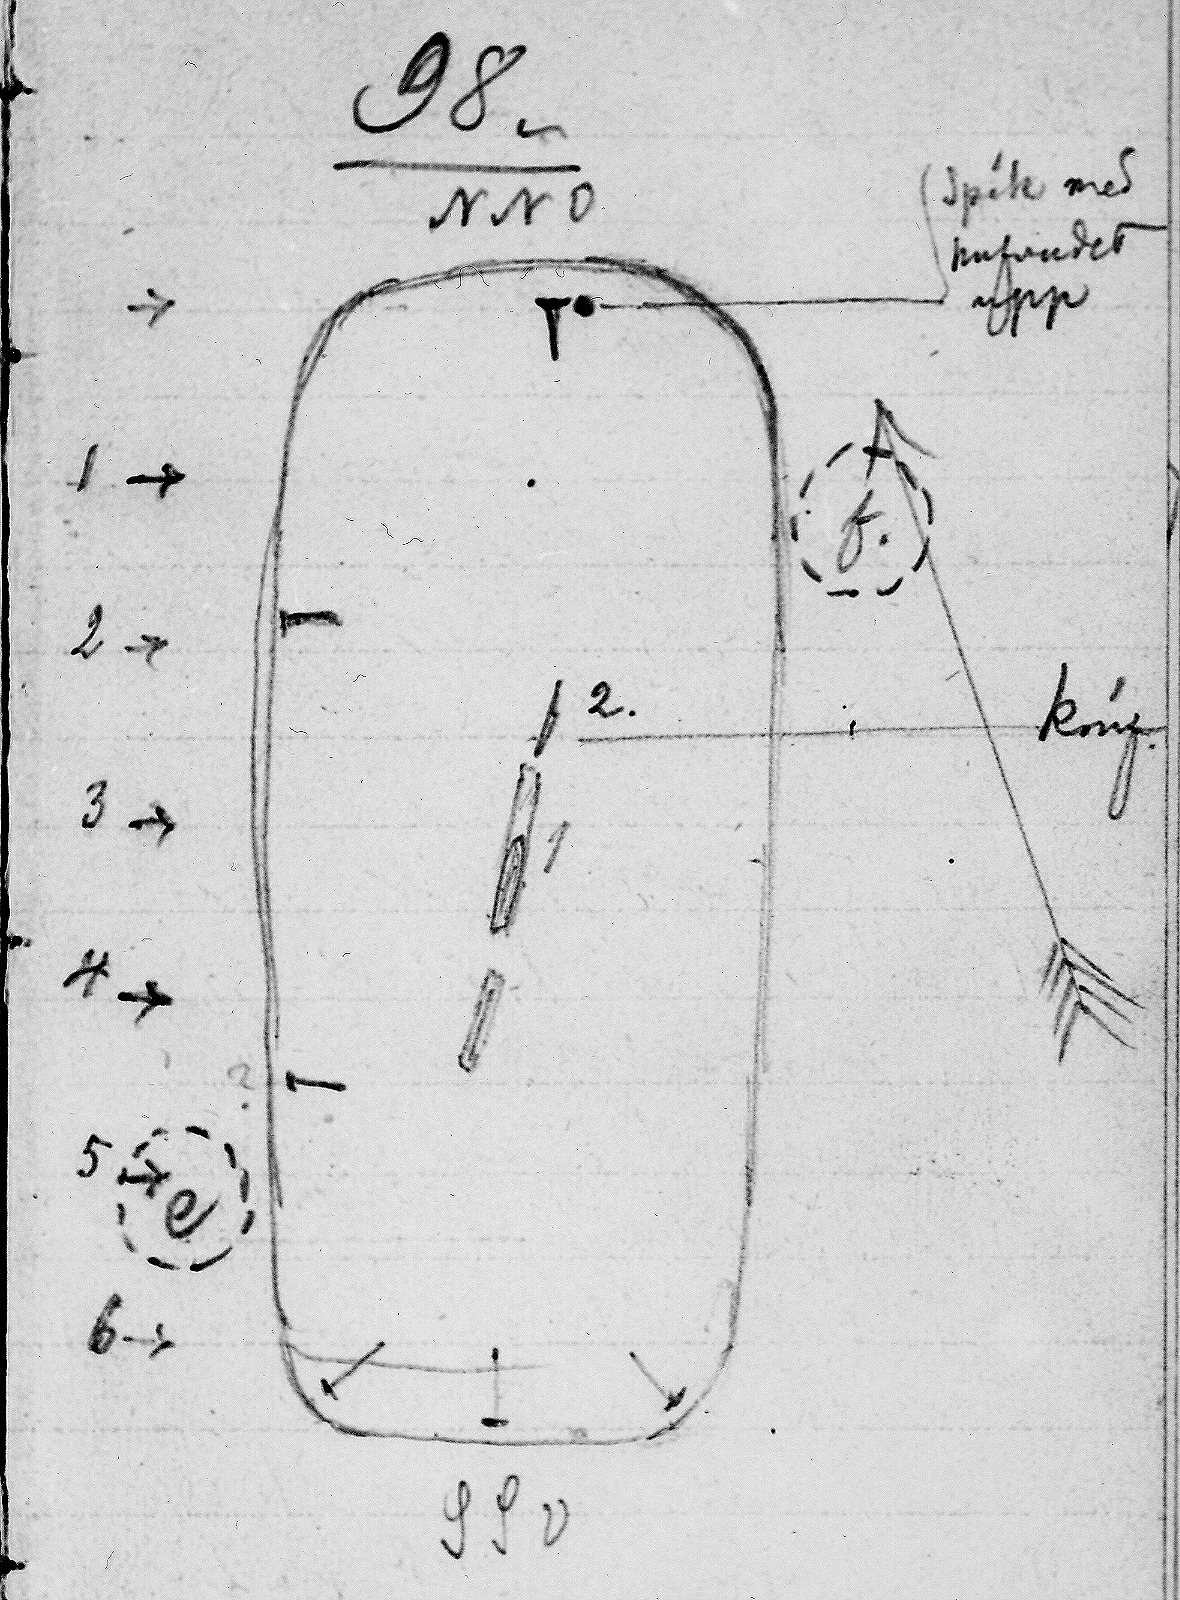 98.
NNO
Spik med
hufvudet
upp
1
f.
2
2.
king.
3
1
4
?
5
e
6
SSV